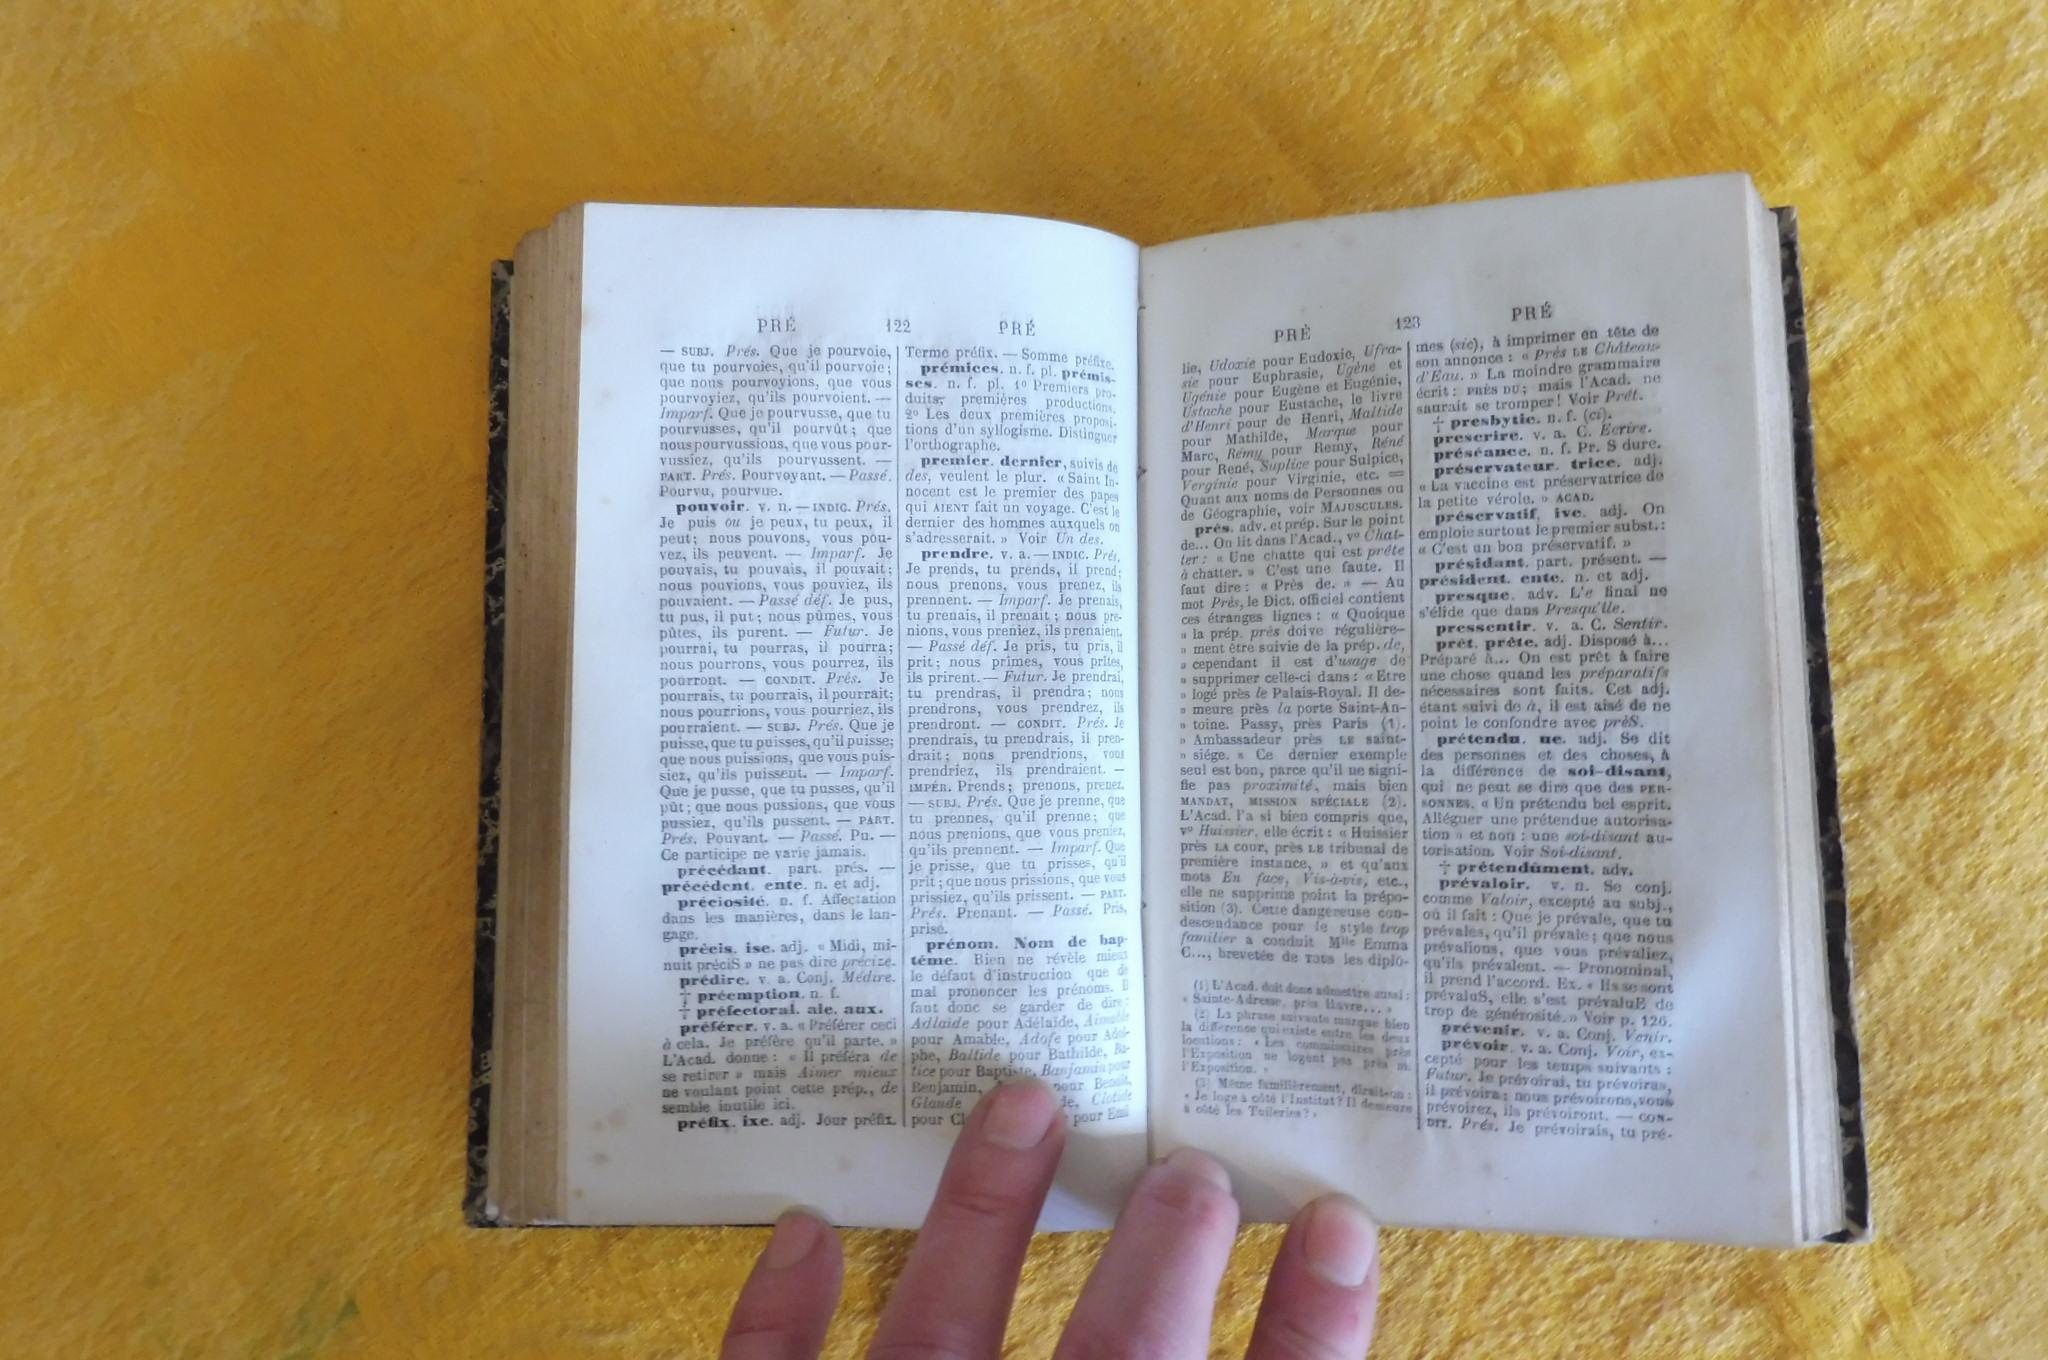 PRÉ 122 PRÉ
— SUBJ. Prés. Que je pourvoie,
que tu pourvoies, qu'il pourvoie;
que nous pourvoyions, que vous
pourvoyiez, qu'ils pourvoient. —
Imparf. Que je pourvusse, que tu
pourvusses, qu'il pourvût; que
nous pourvussions, que vous pour-
vussiez, qu'ils pourvussent. —
PART. Prés. Pourvoyant. — Passé.
Pourvu, pourvue.
pouvoir. v. n. — INDIC. Prés.
Je puis ou je peux, tu peux, il
peut; nous pouvons, vous pou-
vez, ils peuvent. — Imparf. Je
pouvais, tu pouvais, il pouvait;
nous pouvions, vous pouviez, ils
pouvaient. — Passé déf. Je pus,
tu pus, il put; nous pûmes, vous
pûtes, ils purent. — Futur. Je
pourrai, tu pourras, il pourra;
nous pourrons, vous pourrez, ils
pourront. — CONDIT. Prés. Je
pourrais, tu pourrais, il pourrait;
nous pourrions, vous pourriez, ils
pourraient. — SUBJ. Prés. Que je
puisse, que tu puisses, qu'il puisse;
que nous puissions, que vous puis-
siez, qu'ils puissent. — Imparf.
Que je pusse, que tu pusses, qu'il
pût; que nous pussions, que vous
pussiez, qu'ils pussent. — PART.
Prés. Pouvant. — Passé. Pu. —
Ce participe ne varie jamais.
précédant. part. prés. —
précédent. ente. n. et adj.
préciosité. n. f. Affectation
dans les manières, dans le lan-
gage.
précis. ise. adj. « Midi, mi-
nuit préciS » ne pas dire précize.
prédire. v. a. Conj. Médire.
† préemption. n. f.
† préfectoral. ale. aux.
préférer. v. a. « Préférer ceci
à cela. Je préfère qu'il parte. »
L'Acad. donne : « Il préféra de
se retirer » mais Aimer mieux
ne voulant point cette prép., de
semble inutile ici.
préfix. ixe. adj. Jour préfix.
Terme préfix. — Somme préfixe.
prémices. n. f. pl. prémis-
ses. n. f. pl. 1º Premiers pro-
duits, premières productions.
2º Les deux premières proposi-
tions d'un syllogisme. Distinguer
l'orthographe.
premier. dernier, suivis de
des, veulent le plur. « Saint In-
nocent est le premier des papes
qui AIENT fait un voyage. C'est le
dernier des hommes auxquels on
s'adresserait. » Voir Un des.
prendre. v. a. — INDIC. Prés.
Je prends, tu prends, il prend;
nous prenons, vous prenez, ils
prennent. — Imparf. Je prenais,
tu prenais, il prenait; nous pre-
nions, vous preniez, ils prenaient.
— Passé déf. Je pris, tu pris, il
prit; nous prîmes, vous prîtes,
ils prirent. — Futur. Je prendrai,
tu prendras, il prendra; nous
prendrons, vous prendrez, ils
prendront. — CONDIT. Prés. Je
prendrais, tu prendrais, il pren-
drait; nous prendrions, vous
prendriez, ils prendraient. —
IMPÉR. Prends; prenons, prenez.
— SUBJ. Prés. Que je prenne, que
tu prennes, qu'il prenne; que
nous prenions, que vous preniez,
qu'ils prennent. — Imparf. Que
je prisse, que tu prisses, qu'il
prît; que nous prissions, que vous
prissiez, qu'ils prissent. — PART.
Prés. Prenant. — Passé. Pris,
prise.
prénom. Nom de bap-
tême. Bien ne révèle mieux
le défaut d'instruction que de
mal prononcer les prénoms. Il
faut donc se garder de dire :
Adlaide pour Adélaïde, Aimable
pour Amable, Adofe pour Adol-
phe, Baltide pour Bathilde, Ba-
tice pour Baptiste, Banjamin pour
Benjamin, pour Benoît,
Glaude de, Clotide
pour Cl pour Emil
PRÈ 123 PRÉ
lie, Udoxie pour Eudoxie, Ufra-
sie pour Euphrasie, Ugène et
Ugénie pour Eugène et Eugénie,
Ustache pour Eustache, le livre
d'Henri pour de Henri, Maltide
pour Mathilde, Marque pour
Marc, Rémy pour Remy, Réné
pour René, Suplice pour Sulpice,
Verginie pour Virginie, etc. =
Quant aux noms de Personnes ou
de Géographie, voir MAJUSCULES.
près. adv. et prép. Sur le point
de... On lit dans l'Acad., vº Chat-
ter : « Une chatte qui est prête
à chatter. » C'est une faute. Il
faut dire : « Près de. » — Au
mot Près, le Dict. officiel contient
ces étranges lignes : « Quoique
» la prép. près doive régulière-
» ment être suivie de la prép. de,
» cependant il est d'usage de
» supprimer celle-ci dans : « Être
» logé près le Palais-Royal. Il de-
» meure près la porte Saint-An-
» toine. Passy, près Paris (1).
» Ambassadeur près LE saint-
» siége. « Ce dernier exemple
seul est bon, parce qu'il ne signi-
fie pas proximité, mais bien
MANDAT, MISSION SPÉCIALE (2).
L'Acad. l'a si bien compris que,
vº Huissier, elle écrit : « Huissier
près LA cour, près LE tribunal de
première instance, » et qu'aux
mots En face, Vis-à-vis, etc.,
elle ne supprime point la prépo-
sition (3). Cette dangereuse con-
descendance pour le style trop
familier a conduit Mlle Emma
C..., brevetée de TOUS les diplo-
(1) L'Acad. doit donc admettre aussi :
« Sainte-Adresse, près Havre... »
(2) La phrase suivante marque bien
la différence qui existe entre les deux
locutions : « Les commissaires près
l'Exposition ne logent pas près
l'Exposition. »
(3) Même familièrement, dirait-on :
« Je loge à côté l'Institut? Il demeure
à côté les Tuileries? »
mes (sic), à imprimer en tête de
son annonce : « Près LE Château-
d'Eau. » La moindre grammaire
écrit : PRÈS DU; mais l'Acad. ne
saurait se tromper! Voir Prêt.
† presbytie. n. f. (ci).
prescrire. v. a. C. Ecrire.
préséance. n. f. Pr. S dure.
préservateur. trice. adj.
« La vaccine est préservatrice de
la petite vérole. » ACAD.
préservatif. ive. adj. On
emploie surtout le premier subst.:
« C'est un bon préservatif. »
présidant. part. présent. —
président. ente. n. et adj.
presque. adv. L'e final ne
s'élide que dans Presqu'île.
pressentir. v. a. C. Sentir.
prêt. prête. adj. Disposé à...
Préparé à... On est prêt à faire
une chose quand les préparatifs
nécessaires sont faits. Cet adj.
étant suivi de à, il est aisé de ne
point le confondre avec prèS.
prétendu. ue. adj. Se dit
des personnes et des choses, à
la différence de soi-disant,
qui ne peut se dire que des PER-
SONNES. « Un prétendu bel esprit.
Alléguer une prétendue autorisa-
tion » et non : une soi-disant au-
torisation. Voir Soi-disant.
† prétendûment. adv.
prévaloir. v. n. Se conj.
comme Valoir, excepté au subj.,
où il fait : Que je prévale, que tu
prévales, qu'il prévale; que nous
prévalions, que vous prévaliez,
qu'ils prévalent. — Pronominal,
il prend l'accord. Ex. « Ils se sont
prévaluS, elle s'est prévaluE de
trop de générosité. » Voir p. 126.
prévenir. v. a. Conj. Venir.
prévoir. v. a. Conj. Voir, ex-
cepté pour les temps suivants :
Futur. Je prévoirai, tu prévoiras,
il prévoira; nous prévoirons, vous
prévoirez, ils prévoiront. — CON-
DIT. Prés. Je prévoirais, tu pré-